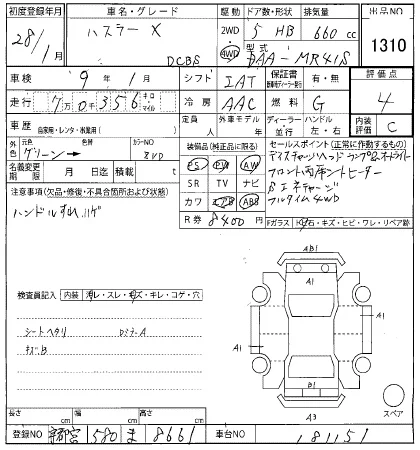 初度登録年月 車名・グレード 駆動 ドア数・形状 排気量 出品NO
28/1月 ハスラー X DCBS 2WD 4WD 5 HB 660cc 1310
型式 DAA-MR41S
車検 9年1月 シフト IAT 保証書 有・無 評価点
走行 7万0千356 キロ マイル 冷房 AAC 燃料 G 4
車歴 自家用・レンタ・営業用( ) 定員 人 外車モデル 年 ディーラー 並行 ハンドル 左・右 内装評価 C
外色 元色 色替 カラーNO
グリーン→
装備品(純正品に限る) セールスポイント(正常に作動するもの)
名義変更期限 月 日迄 積載 t
PS PW AW
SR TV ナビ
カワ エアB ABS
R券 8400円
ディスチャージヘッドランプ
フロント両席シートヒーター
Sエネチャージ
フルタイム4WD
注意事項(欠品・修復・不具合箇所および状態)
ハンドルすれ、ハゲ
Fガラス 飛石・キズ・ヒビ・ワレ・リペア跡
検査員記入 内装 汚レ・スレ・キズ・キレ・コゲ・穴
シートヘタリ
キズB
AB1
A1
A1
A1
B1
A3
スペア
長さ cm 幅 cm 高さ cm
登録NO 宇都宮 580 ま 8661 車台NO 181151